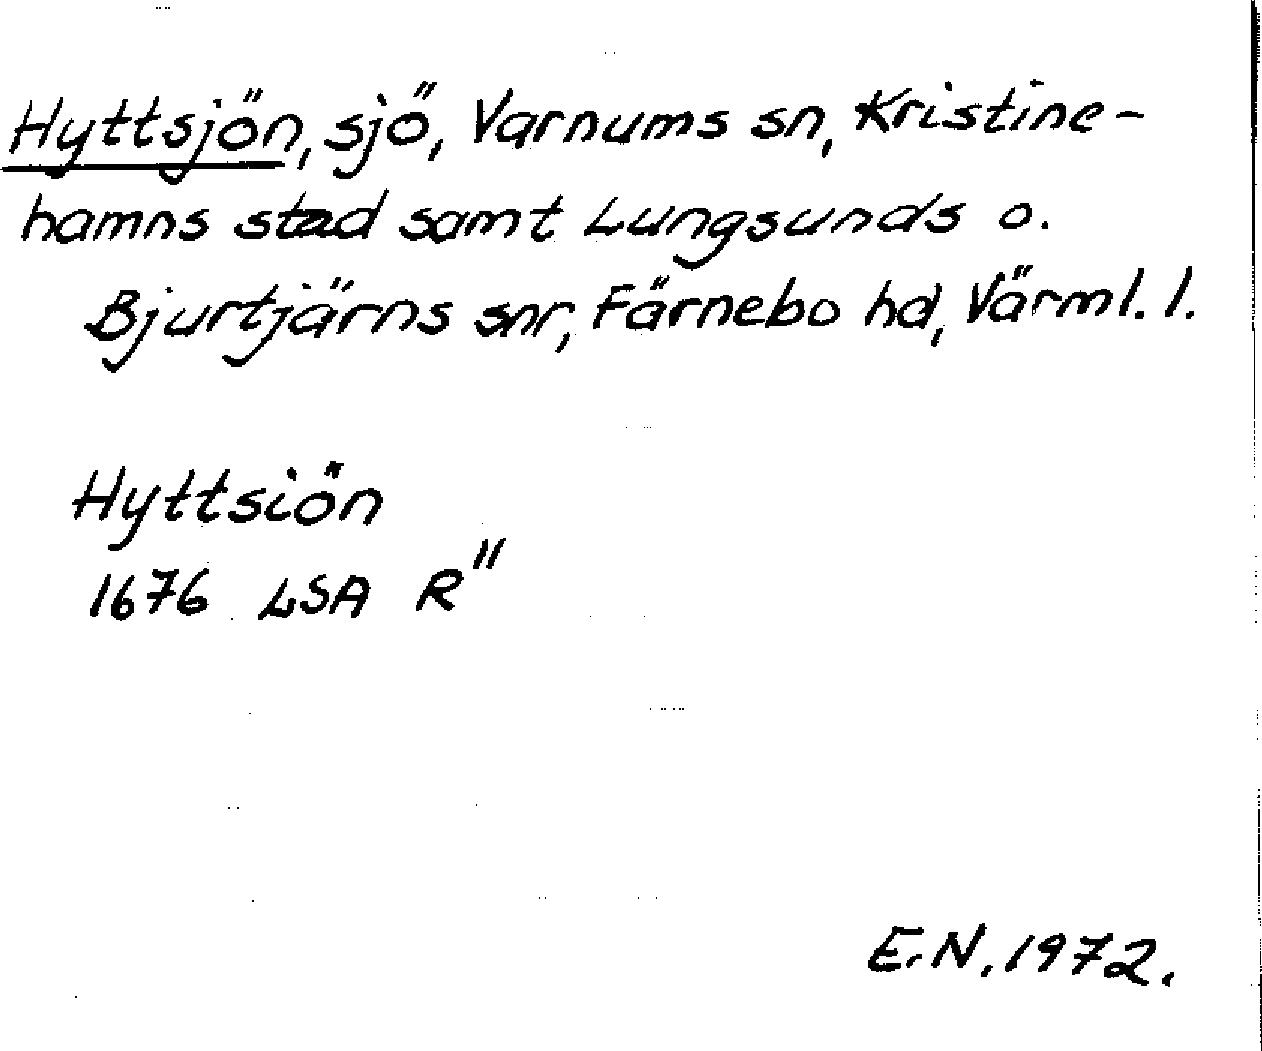 Hyttsjön, sjö, Varnums sn, Kristine-
hamns stad samt Lungsunds o.
Bjurtjärns snr, Färnebo hd, Värml. l.
Hyttsiön
1676 LSA R"
E.N. 1972.